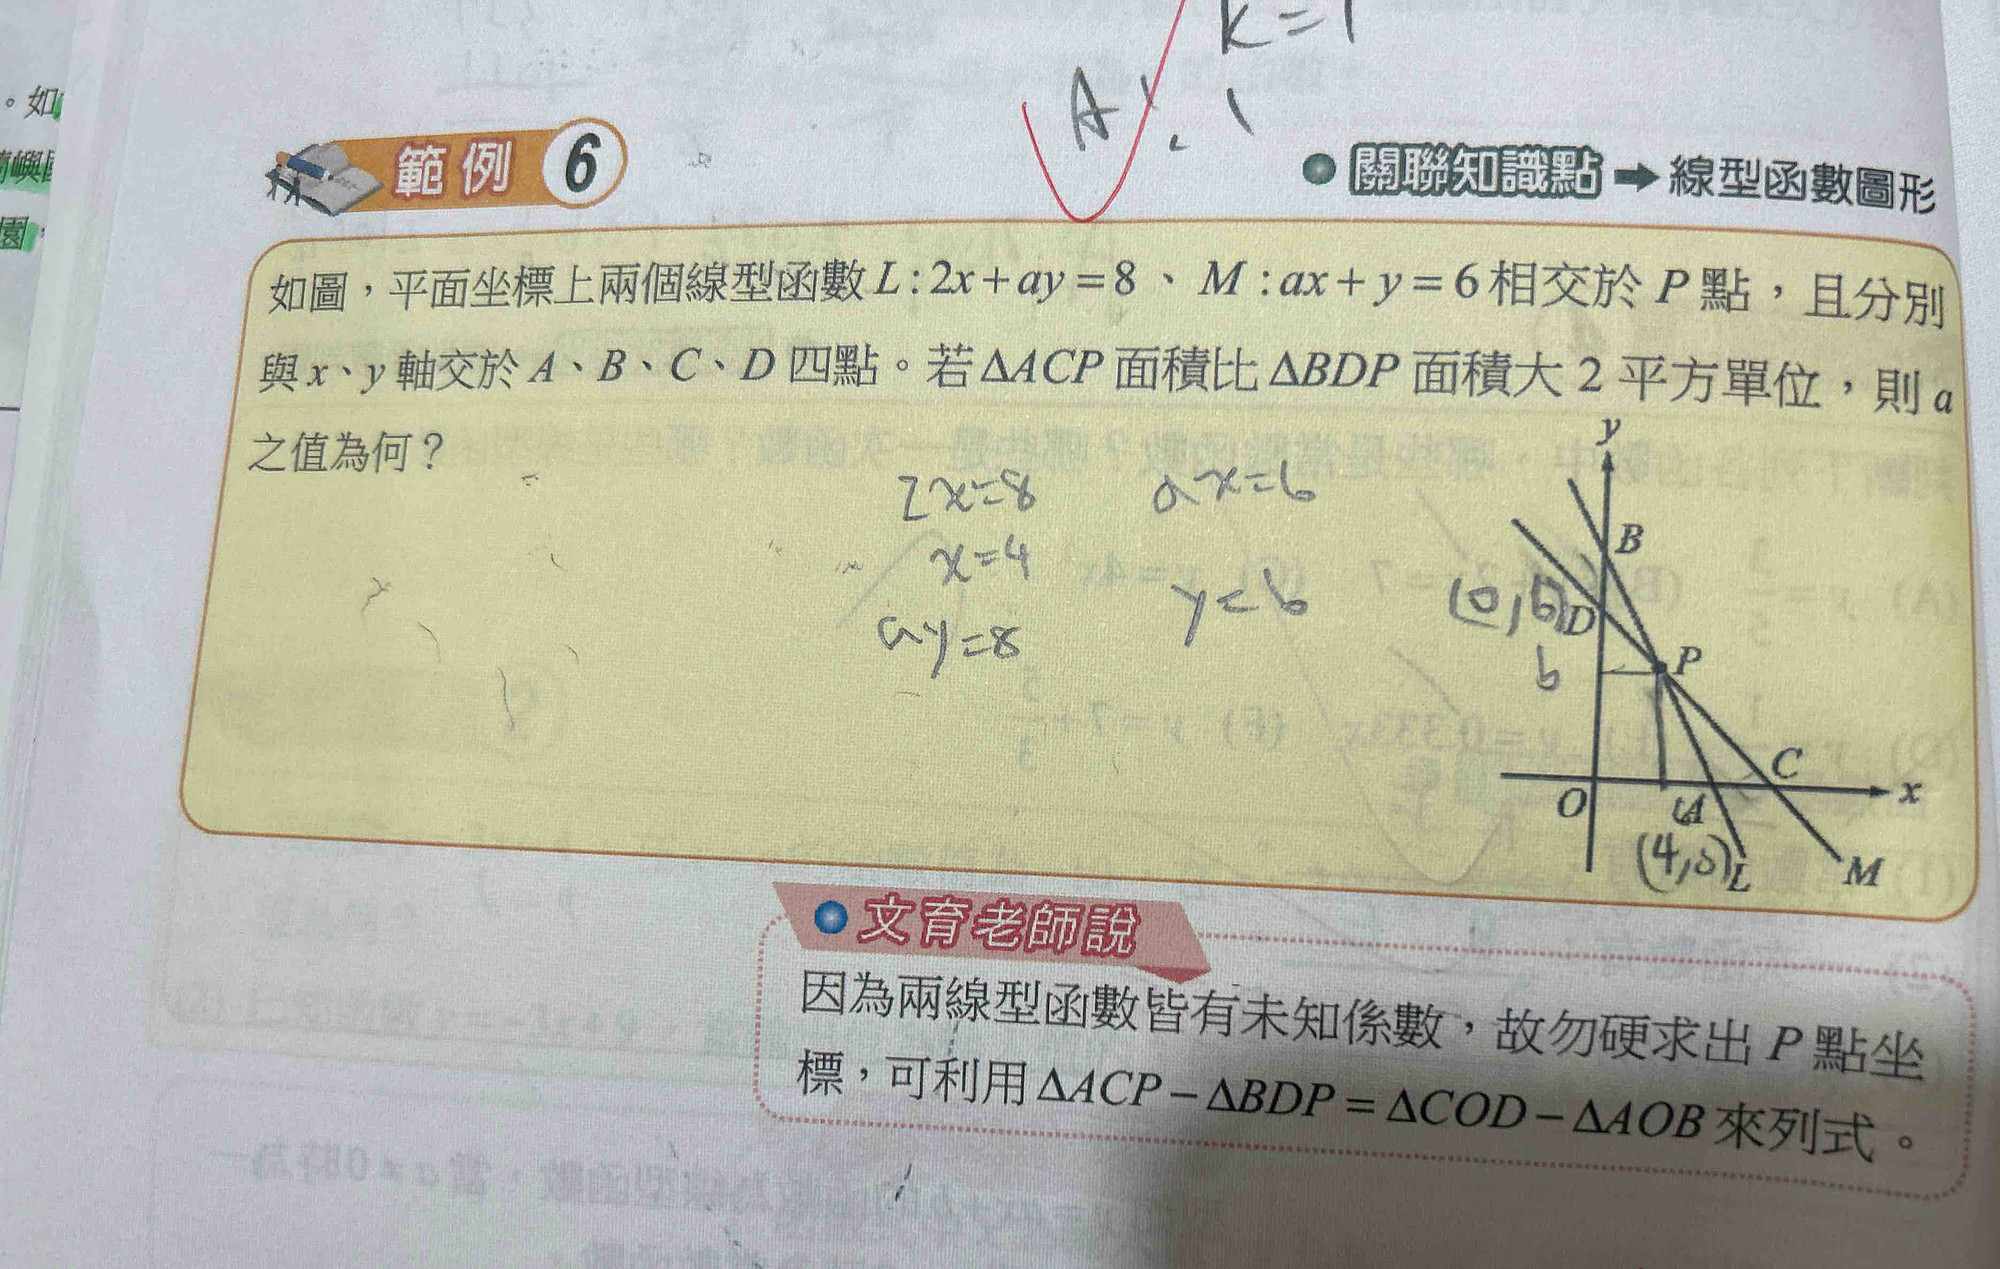 k=1
A: 1
。如
嶼
園，
範例 6
關聯知識點➡線型函數圖形
如圖，平面坐標上兩個線型函數 L：2x+ay=8、M：ax+y=6 相交於 P 點，且分別
與 x、y 軸交於 A、B、C、D 四點。若 ΔACP 面積比 ΔBDP 面積大 2 平方單位，則 a
之值為何？
2x=8 ax=6
x=4
y=6
ay=8
y
B
(0,6)
D
6
P
C
x
O
A
(4,0)
L
M
文育老師說
因為兩線型函數皆有未知係數，故勿硬求出 P 點坐
標，可利用 ΔACP－ΔBDP＝ΔCOD－ΔAOB 來列式。